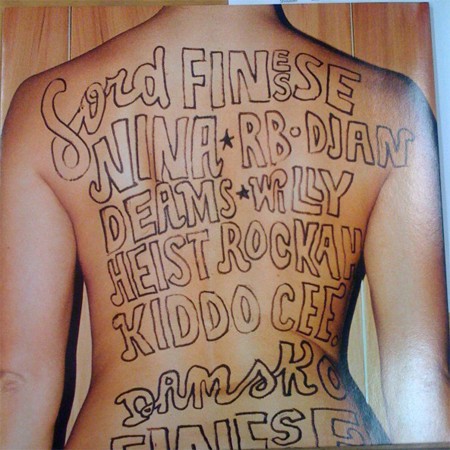 Sord FINESSE
NINA★RB·DJAN
DEAMS★WiLLY
HEIST ROCKAH
KIDDO CEE.
DAMSKO
FINESE